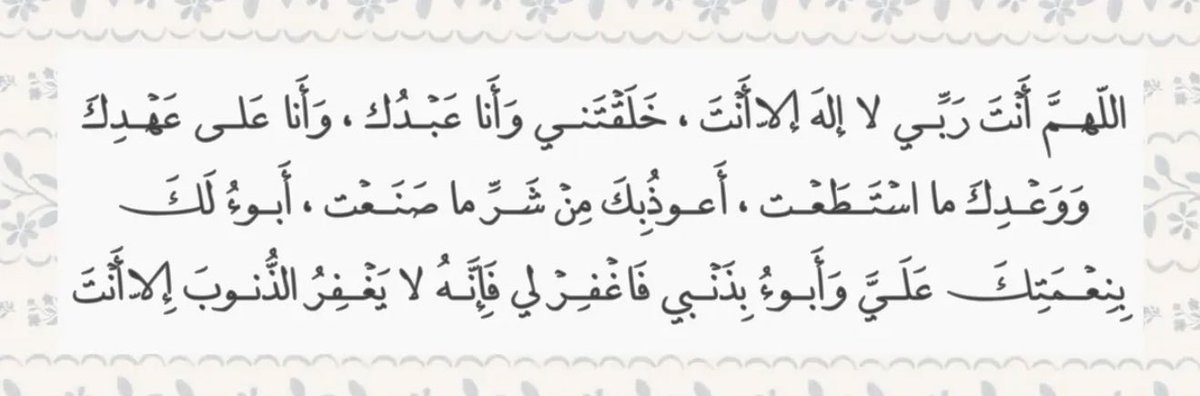 اللّهمَّ أَنْتَ رَبِّي لا إلهَ إلا أَنْتَ ، خَلَقْتَني وَأَنا عَبْدُك ، وَأَنا عَلى عَهْدِكَ
وَوَعْدِكَ ما اسْتَطَعْت ، أَعوذُبِكَ مِنْ شَرِّ ما صَنَعْت ، أَبوءُ لَكَ
بِنِعْمَتِكَ عَلَيَّ وَأَبوءُ بِذَنْبي فَاغْفِرْ لي فَإِنَّهُ لا يَغْفِرُ الذُّنوبَ إلا أَنْتَ